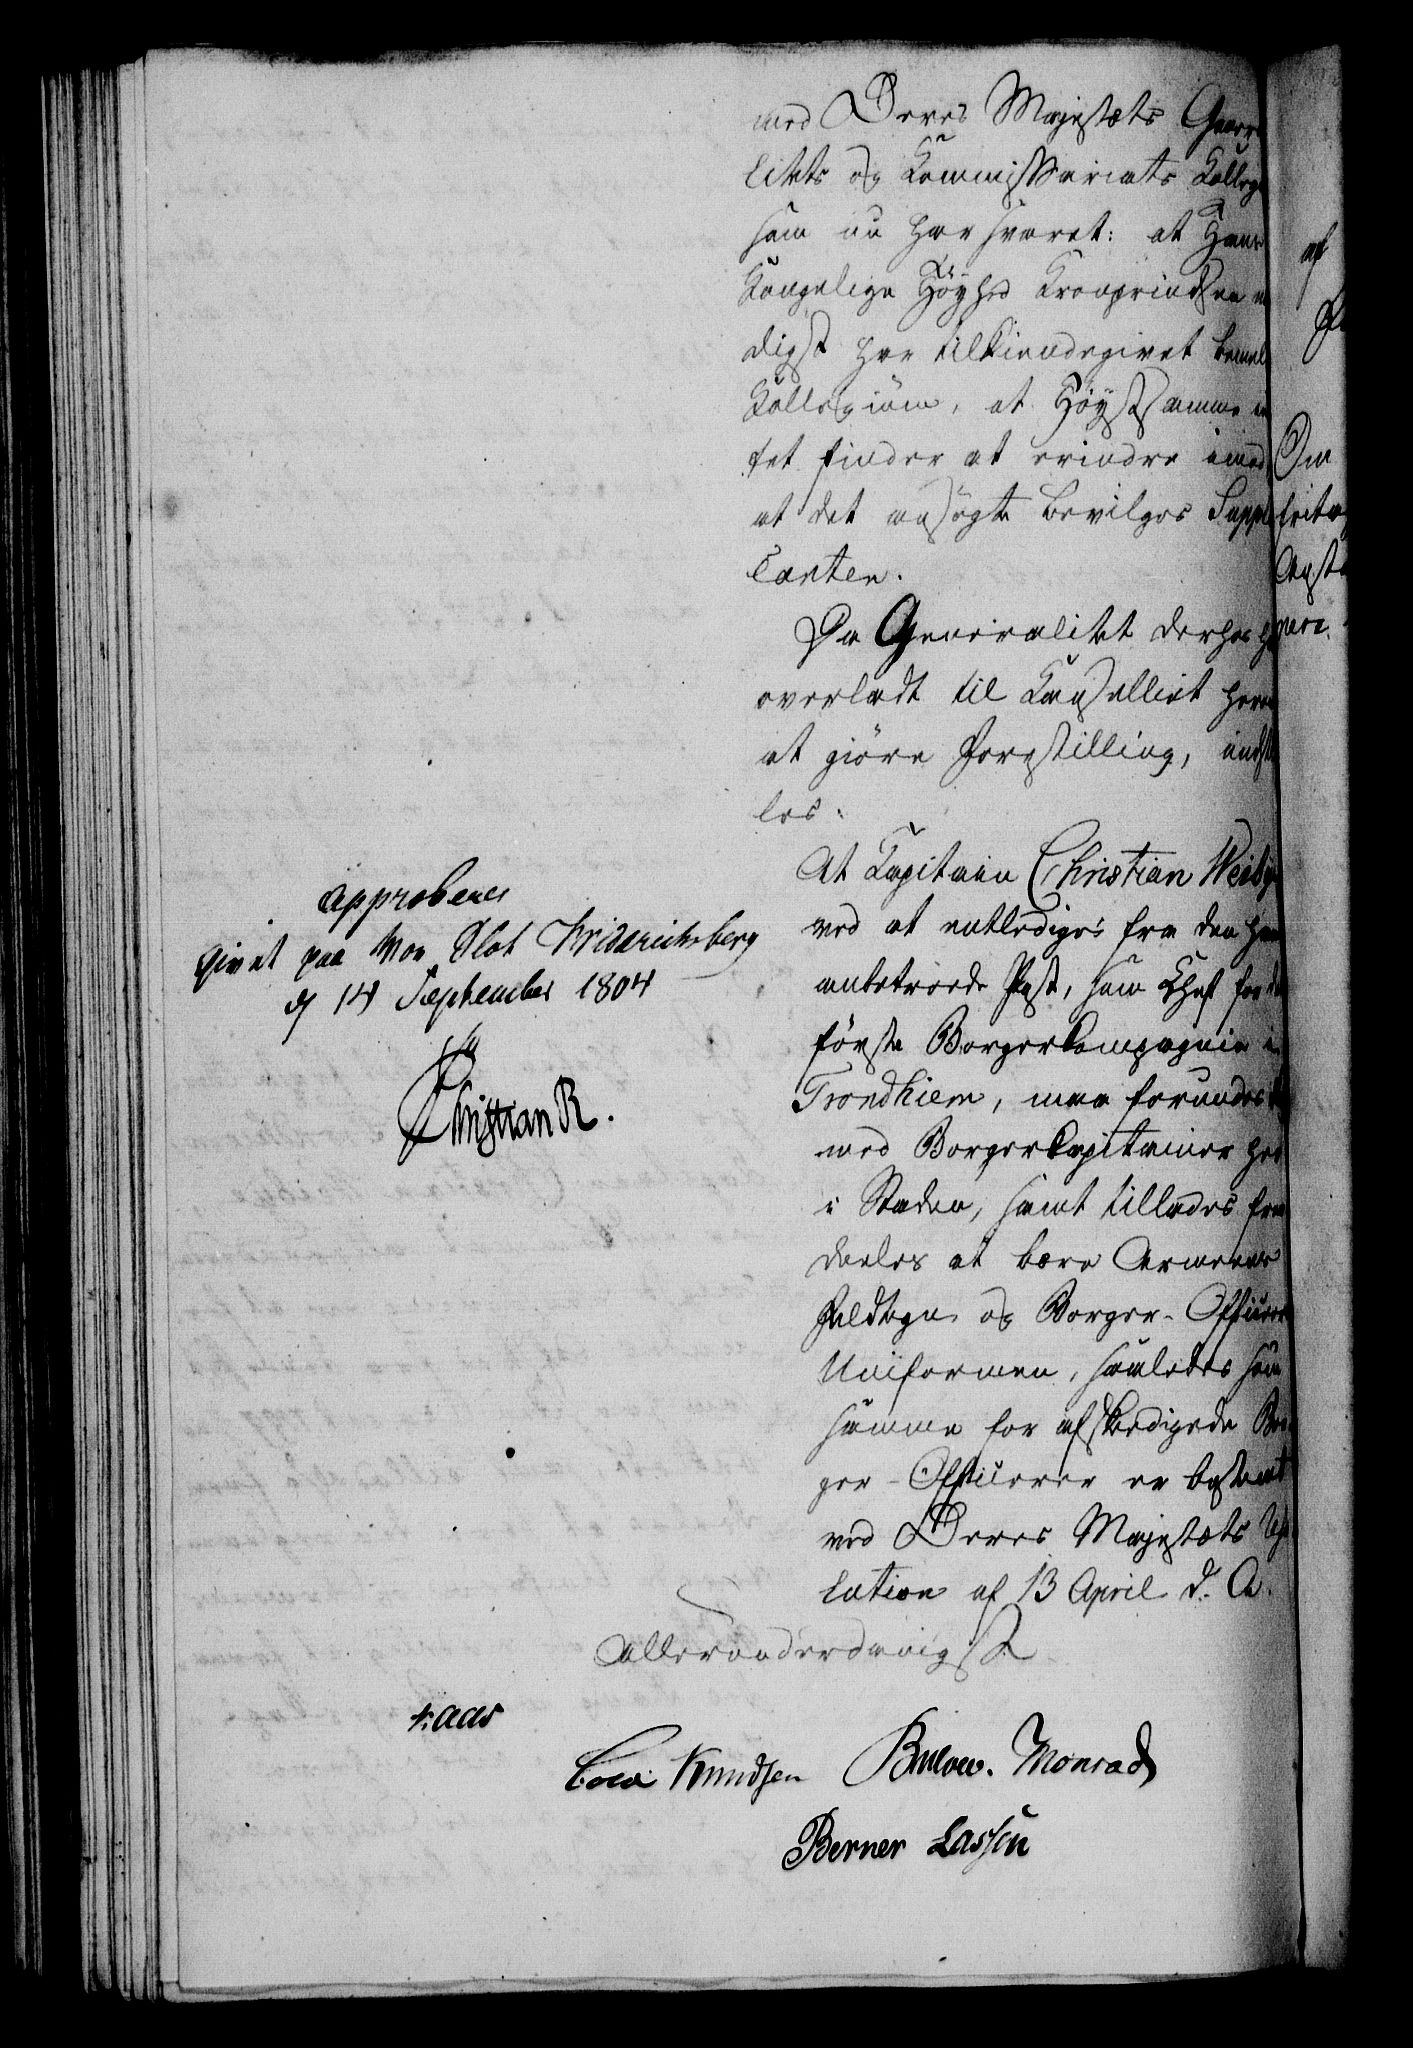 med Deres Majestæts Genera
litets og Kommissariats Kolleg
som nu har svaret: at Hans
Kongelige Høyhed Kronprindsen n
digst har tilkiendegivet bemel
Kollegium, at Høystsamme in
tet finder at erindre imod
at det ansøgte bevilges Suppl
canten.
Da Generalitet derhos h
overladt til Kanselliet herom
at giøre Forestilling, indstil
les:
At Capitain Christian Weiby
ved at entlediges fra den ham
anbetroede Post, som Chef for d
første Borgerkompagnie i
Trondhiem, maa forundes
med Borgerkapitainer her
i Staden, samt tillades frem
deeles at bære Armeens
Feldtegn og Borger-Officeer
Uniformen, saaledes som
samme for afskedigede Bor
ger-Officerer er bestemt
ved Deres Majestæts
lution af 13 April d. A.
Allerunderdanigst
approberes
givet paa Vor Slot Friderichsberg
d 14 September 1804
Christian R.
Kaas
Cold Knudsen Bülow. Monrad
Berner Lassen
af
Om
frita
Anst
neri.